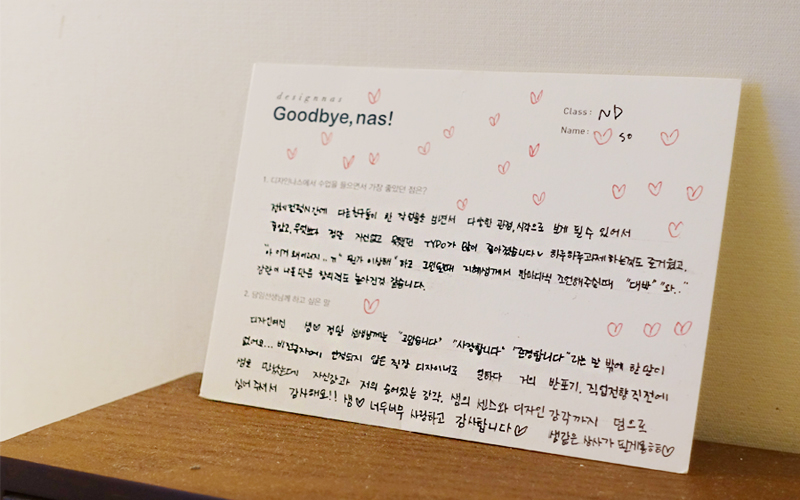 designnas
Goodbye, nas!
Class: ND
Name: so
1. 디자인나스에서 수업을 들으면서 가장 좋았던 점은?
전체컨펌시간에 다른친구들이 한 작업물을 보면서 다양한 관점, 시각으로 보게 될 수 있어서
좋았고, 무엇보다 정말 자신없고 못했던 TYPO가 많이 좋아졌습니다 하루하루과제 하는것도 즐거웠고,
"아 이거 왜이러지.. ㅠ" "뭔가 이상해" 하고 고민할때 지혜쌤께서 한마디씩 조언해주실때 "대박" "와.."
감탄이 나올만큼 퀄리티도 높아진것 같습니다.
2. 담임선생님께 하고 싶은 말
디자인여신 쌤 정말 선생님께는 "고맙습니다" "사랑합니다" "존경합니다" 라는 말 밖에 할 말이
없어요... 비전공자에 인정되지 않은 직장 디자이너로 일하다 거의 반포기, 직업전향 직전에
쌤을 만났는데 자신감과 저의 숨어있는 감각, 쌤의 센스와 디자인 감각까지 덤으로
심어 주셔서 감사해요!! 쌤 너무너무 사랑하고 감사합니다
쌤같은 상사가 될게용ㅎㅎ